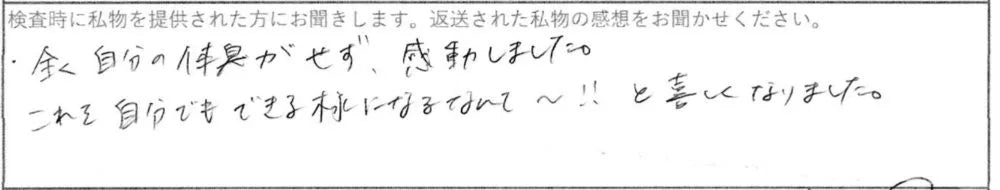 検査時に私物を提供された方にお聞きします。返送された私物の感想をお聞かせください。
・全く自分の体臭がせず、感動しました。
これを自分でもできる様になるなんて～!! と喜しくなりました。